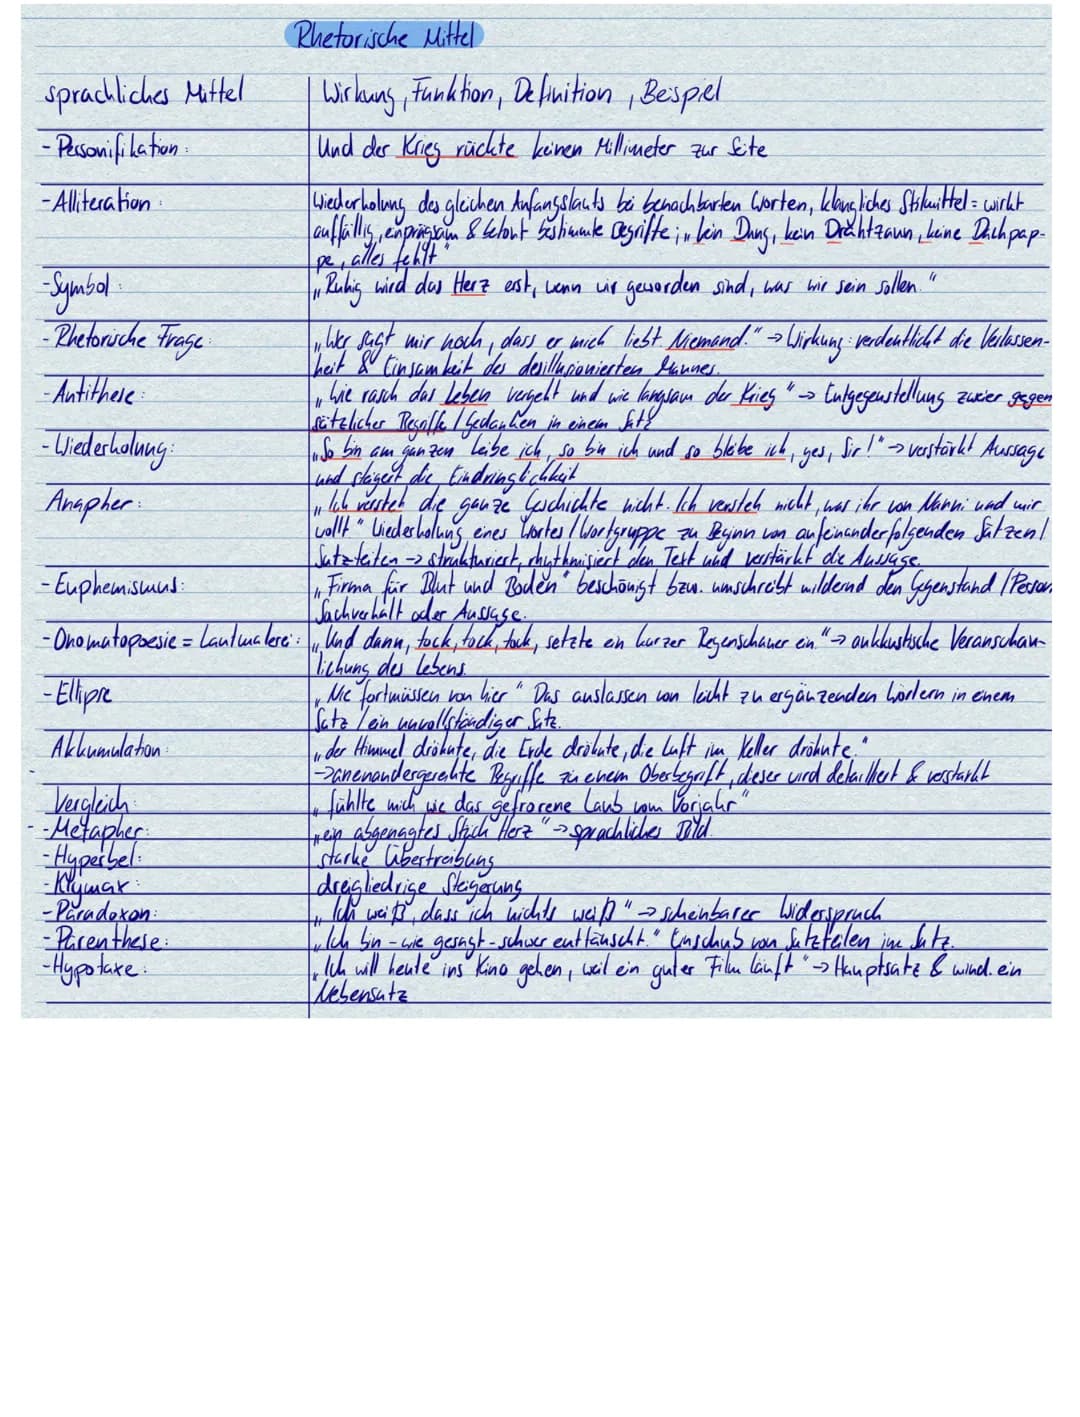 Rhetorische Mittel
sprachliches Mittel Wirkung, Funktion, Definition, Beispiel
- Personifikation: Und der Krieg rückte keinen Millimeter zur Seite
- Alliteration: Wiederholung des gleichen Anfangslauts bei benachbarten Worten, klangliches Stilmittel = wirkt
auffällig, einprägsam & betont bestimmte Begriffe; „kein Dung, kein Drahtzaun, keine Dachpap-
pe, alles fehlt"
- Symbol: „Ruhig wird das Herz erst, wenn wir geworden sind, was wir sein sollen."
- Rhetorische Frage: „Wer sagt mir noch, dass er mich liebt. Niemand." → Wirkung: verdeutlicht die Verlassen-
heit & Einsamkeit des desillusionierten Mannes.
- Antithese: „Wie rasch das Leben vergeht und wie langsam der Krieg" → Entgegenstellung zweier gegen
sätzlicher Begriffe / Gedanken in einem Satz
- Wiederholung: „So bin am ganzen Leibe ich, so bin ich und so bleibe ich, yes, Sir!" → verstärkt Aussage
und steigert die Eindringlichkeit
Anapher: „Ich versteh die ganze Geschichte nicht. Ich versteh nicht, was ihr von Nanni und mir
wollt" Wiederholung eines Wortes / Wortgruppe zu Beginn von aufeinanderfolgenden Sätzen /
Satzteilen → strukturiert, rhythmisiert den Text und verstärkt die Aussage.
- Euphemismus: „Firma für Blut und Boden" beschönigt bzw. umschreibt mildernd den Gegenstand / Person,
Sachverhalt oder Aussage.
- Onomatopoesie = Lautmalerei: „Und dann, tock, tock, tock, setzte ein kurzer Regenschauer ein" → akkustische Veranschau-
lichung des Lebens.
- Ellipse „Nie fortmüssen von hier" Das auslassen von leicht zu ergänzenden Wörtern in einem
Satz / ein unvollständiger Satz.
Akkumulation: „der Himmel dröhnte, die Erde dröhnte, die Luft im Keller dröhnte."
→ aneinandergereihte Begriffe zu einem Oberbegriff, dieser wird detailliert & verstärkt
Vergleich: „fühlte mich wie das gefrorene Laub vom Vorjahr"
- Metapher: „ein abgenagtes Stück Herz" → sprachliches Bild.
- Hyperbel: starke Übertreibung
- Klymax: dreigliedrige Steigerung
- Paradoxon: „Ich weiß, dass ich nichts weiß" → scheinbarer Widerspruch
- Parenthese: „Ich bin - wie gesagt - schwer enttäuscht." Einschub von Satzteilen im Satz.
- Hypotaxe: „Ich will heute ins Kino gehen, weil ein guter Film läuft" → Hauptsatz & mind. ein
Nebensatz